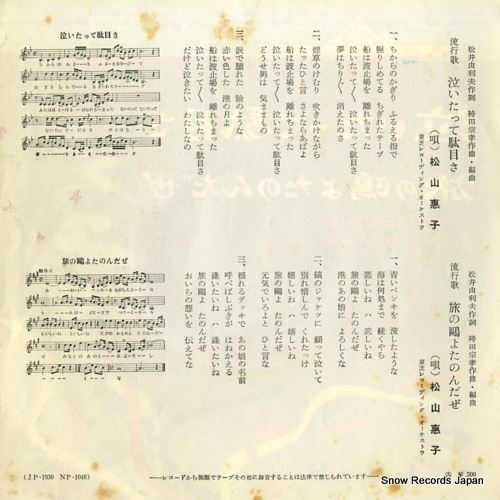 松井由利夫作詞 袴田宗孝作曲・編曲
流行歌 泣いたって駄目さ
(唄) 松山惠子
東芝レコーディング・オーケストラ
一、ちからのかぎり ふるえる指で
握りしめてる ちぎれたテープ
船は波止場を 離れちまった
泣いたって〱 泣いたって駄目さ
夢はちりぢり 消えたのさ
二、煙草のけむり 吹きかけながら
たったひと言 さよならあばよ
船は波止場を 離れちまった
泣いたって〱 泣いたって駄目さ
どうせ男は 気まゝもの
三、涙で腫れた 瞼のような
赤い色した 港の月よ
船は波止場を 離れちまった
泣いたって〱 泣いたって駄目さ
だけど泣きたい わたしなの
泣いたって駄目さ
松井由利夫作詞 袴田宗孝作曲・編曲
流行歌 旅の鷗よたのんだぜ
(唄) 松山惠子
東芝レコーディング・オーケストラ
一、青いペンキを 流したような
海は何処まで 続くやら
恋しいね ハ 恋しいね
旅の鷗よ たのんだぜ
港のあの娘に よろしくな
二、縞のジャケツに 縋って泣いて
別れ惜しんで くれたっけ
嬉しいね ハ 嬉しいね
旅の鷗よ たのんだぜ
元気でいろよと ひと言な
三、揺れるデッキで あの娘の名前
呼べばしぶきが はねかえる
逢いたいね ハ 逢いたいね
旅の鷗よ たのんだぜ
おいらの想いを 伝えてな
旅の鷗よたのんだぜ
(JP-1930 NP-1046)
――レコードから無断でテープその他に録音することは法律で禁じられています――
Ⓐ ¥300
Snow Records Japan